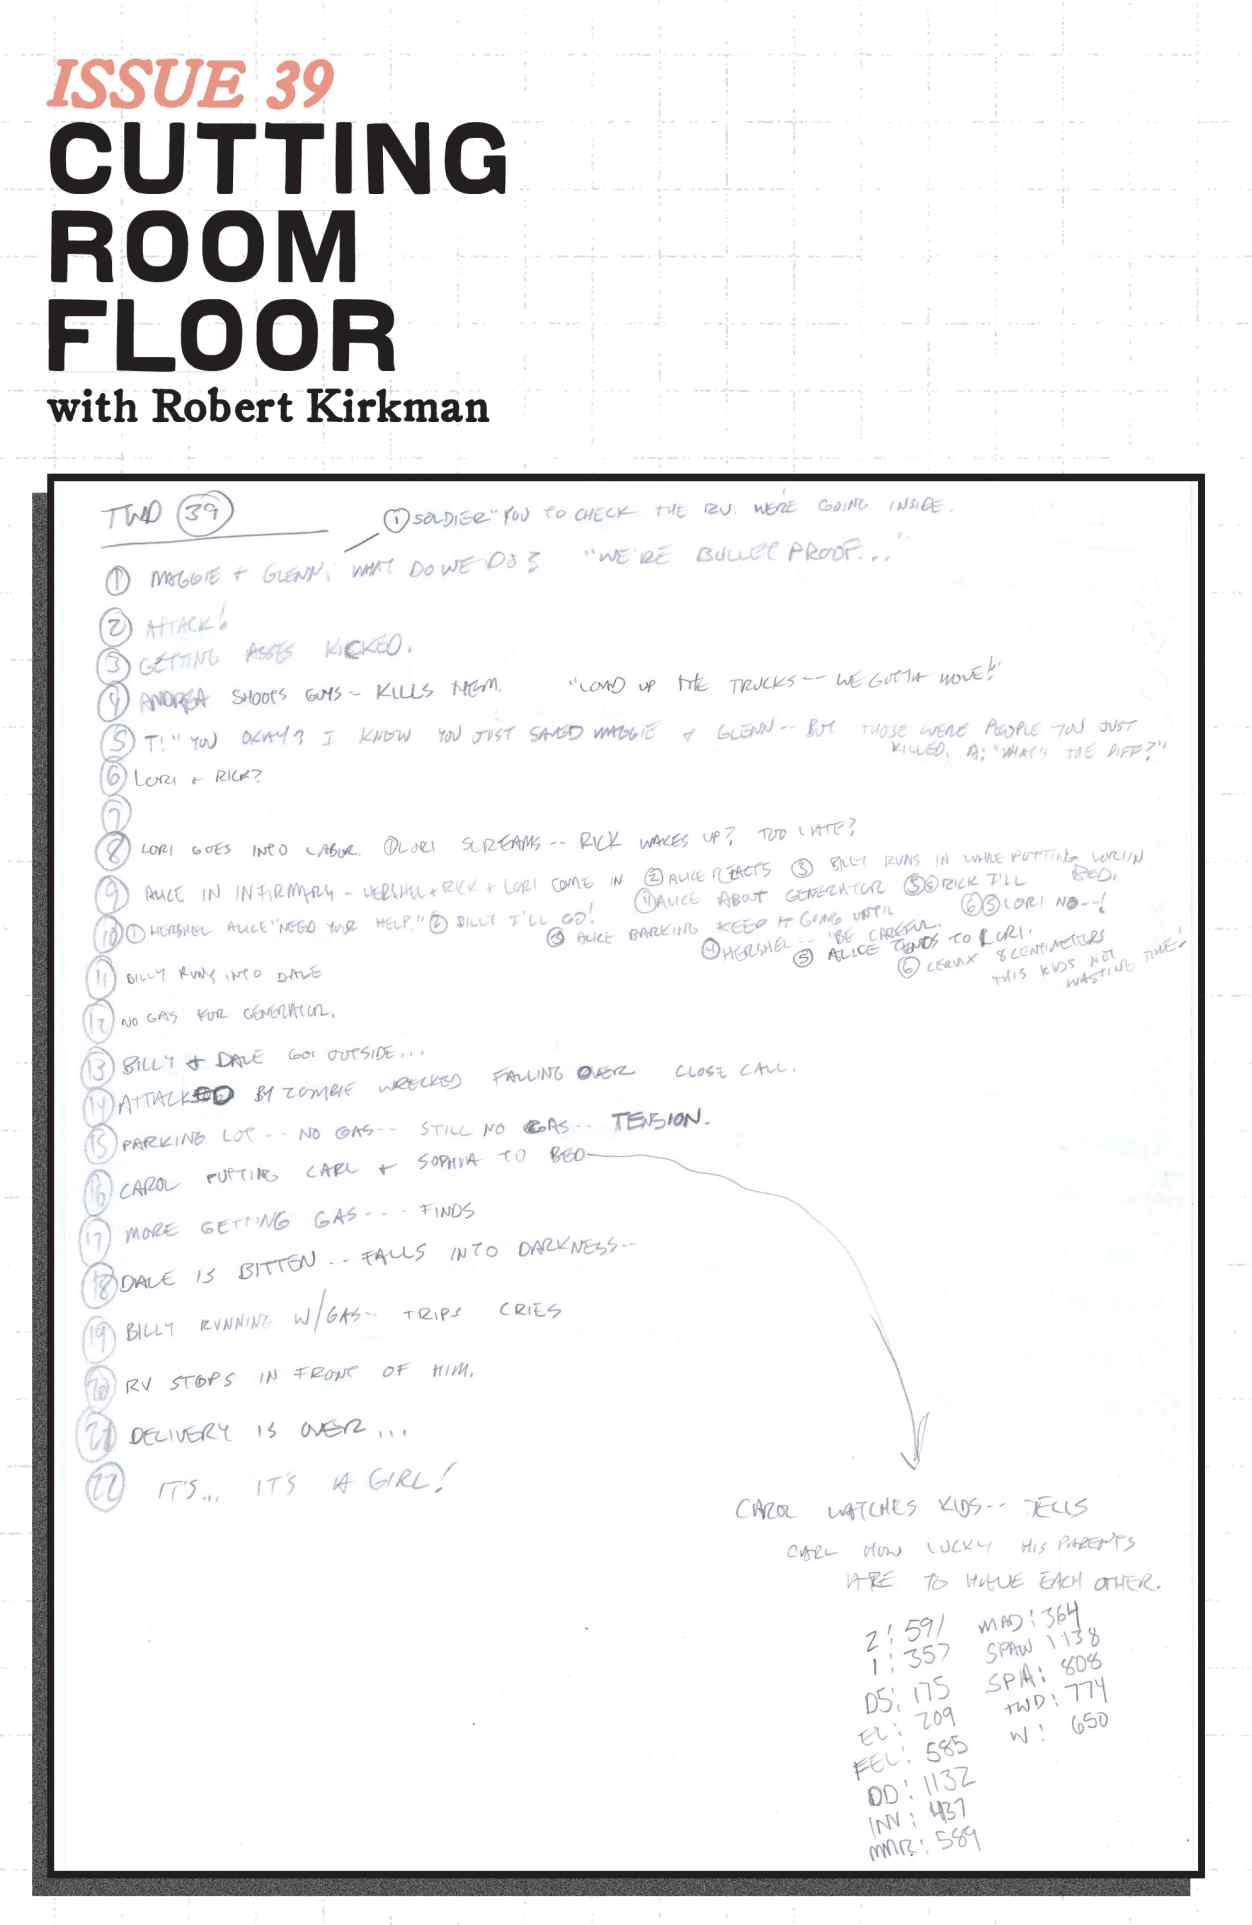 ISSUE 39
CUTTING
ROOM
FLOOR
with Robert Kirkman
TWD 39
① SOLDIER "YOU TO CHECK THE RV. WE'RE GOING INSIDE.
① MAGGIE + GLENN, WHAT DO WE DO? "WE'RE BULLET PROOF..."
② ATTACK!
③ GETTING ASSES KICKED.
④ ANDREA SHOOTS GUYS - KILLS THEM. "LOAD UP THE TRUCKS -- WE GOTTA MOVE!"
⑤ T: "YOU OKAY? I KNOW YOU JUST SAVED MAGGIE + GLENN -- BUT THOSE WERE PEOPLE YOU JUST
KILLED. A: "WHAT'S THE DIFF?"
⑥ LORI + RICK?
⑦
⑧ LORI GOES INTO LABOR. ① LORI SCREAMS -- RICK WAKES UP? TOO LATE?
⑨ ALICE IN INFIRMARY - HERSHEL + RICK + LORI COME IN ② ALICE REACTS ③ BILLY RUNS IN WHILE PUTTING LORI IN
BED. ④ ALICE ABOUT GENERATOR ⑤ RICK I'LL ⑥ LORI NO--!
⑩ ① HERSHEL ALICE "NEED YOUR HELP." ② BILLY I'LL GO! ③ ALICE BARKING KEEP IT GOING UNTIL
④ HERSHEL -- "BE CAREFUL. ⑤ ALICE TENDS TO LORI.
⑥ CERVIX 8 CENTIMETERS
THIS KIDS NOT
WASTING TIME!
⑪ BILLY RUNS INTO DALE
⑫ NO GAS FOR GENERATOR.
⑬ BILLY + DALE GO OUTSIDE...
⑭ ATTACKED BY ZOMBIE WRECKED FALLING OVER CLOSE CALL.
⑮ PARKING LOT -- NO GAS -- STILL NO GAS -- TENSION.
⑯ CAROL PUTTING CARL + SOPHIA TO BED
⑰ MORE GETTING GAS --- FINDS
⑱ DALE IS BITTEN -- FALLS INTO DARKNESS--
⑲ BILLY RUNNING W/GAS -- TRIPS CRIES
⑳ RV STOPS IN FRONT OF HIM.
㉑ DELIVERY IS OVER...
㉒ IT'S... IT'S A GIRL!
CAROL WATCHES KIDS -- TELLS
CARL HOW LUCKY HIS PARENTS
ARE TO HAVE EACH OTHER.
2: 591 MAD: 364
1: 357 SPAW 1138
D5: 175 SPA: 808
EL: 209 TWD: 774
FEL: 585 W: 650
DD: 1132
INV: 437
MMR: 589